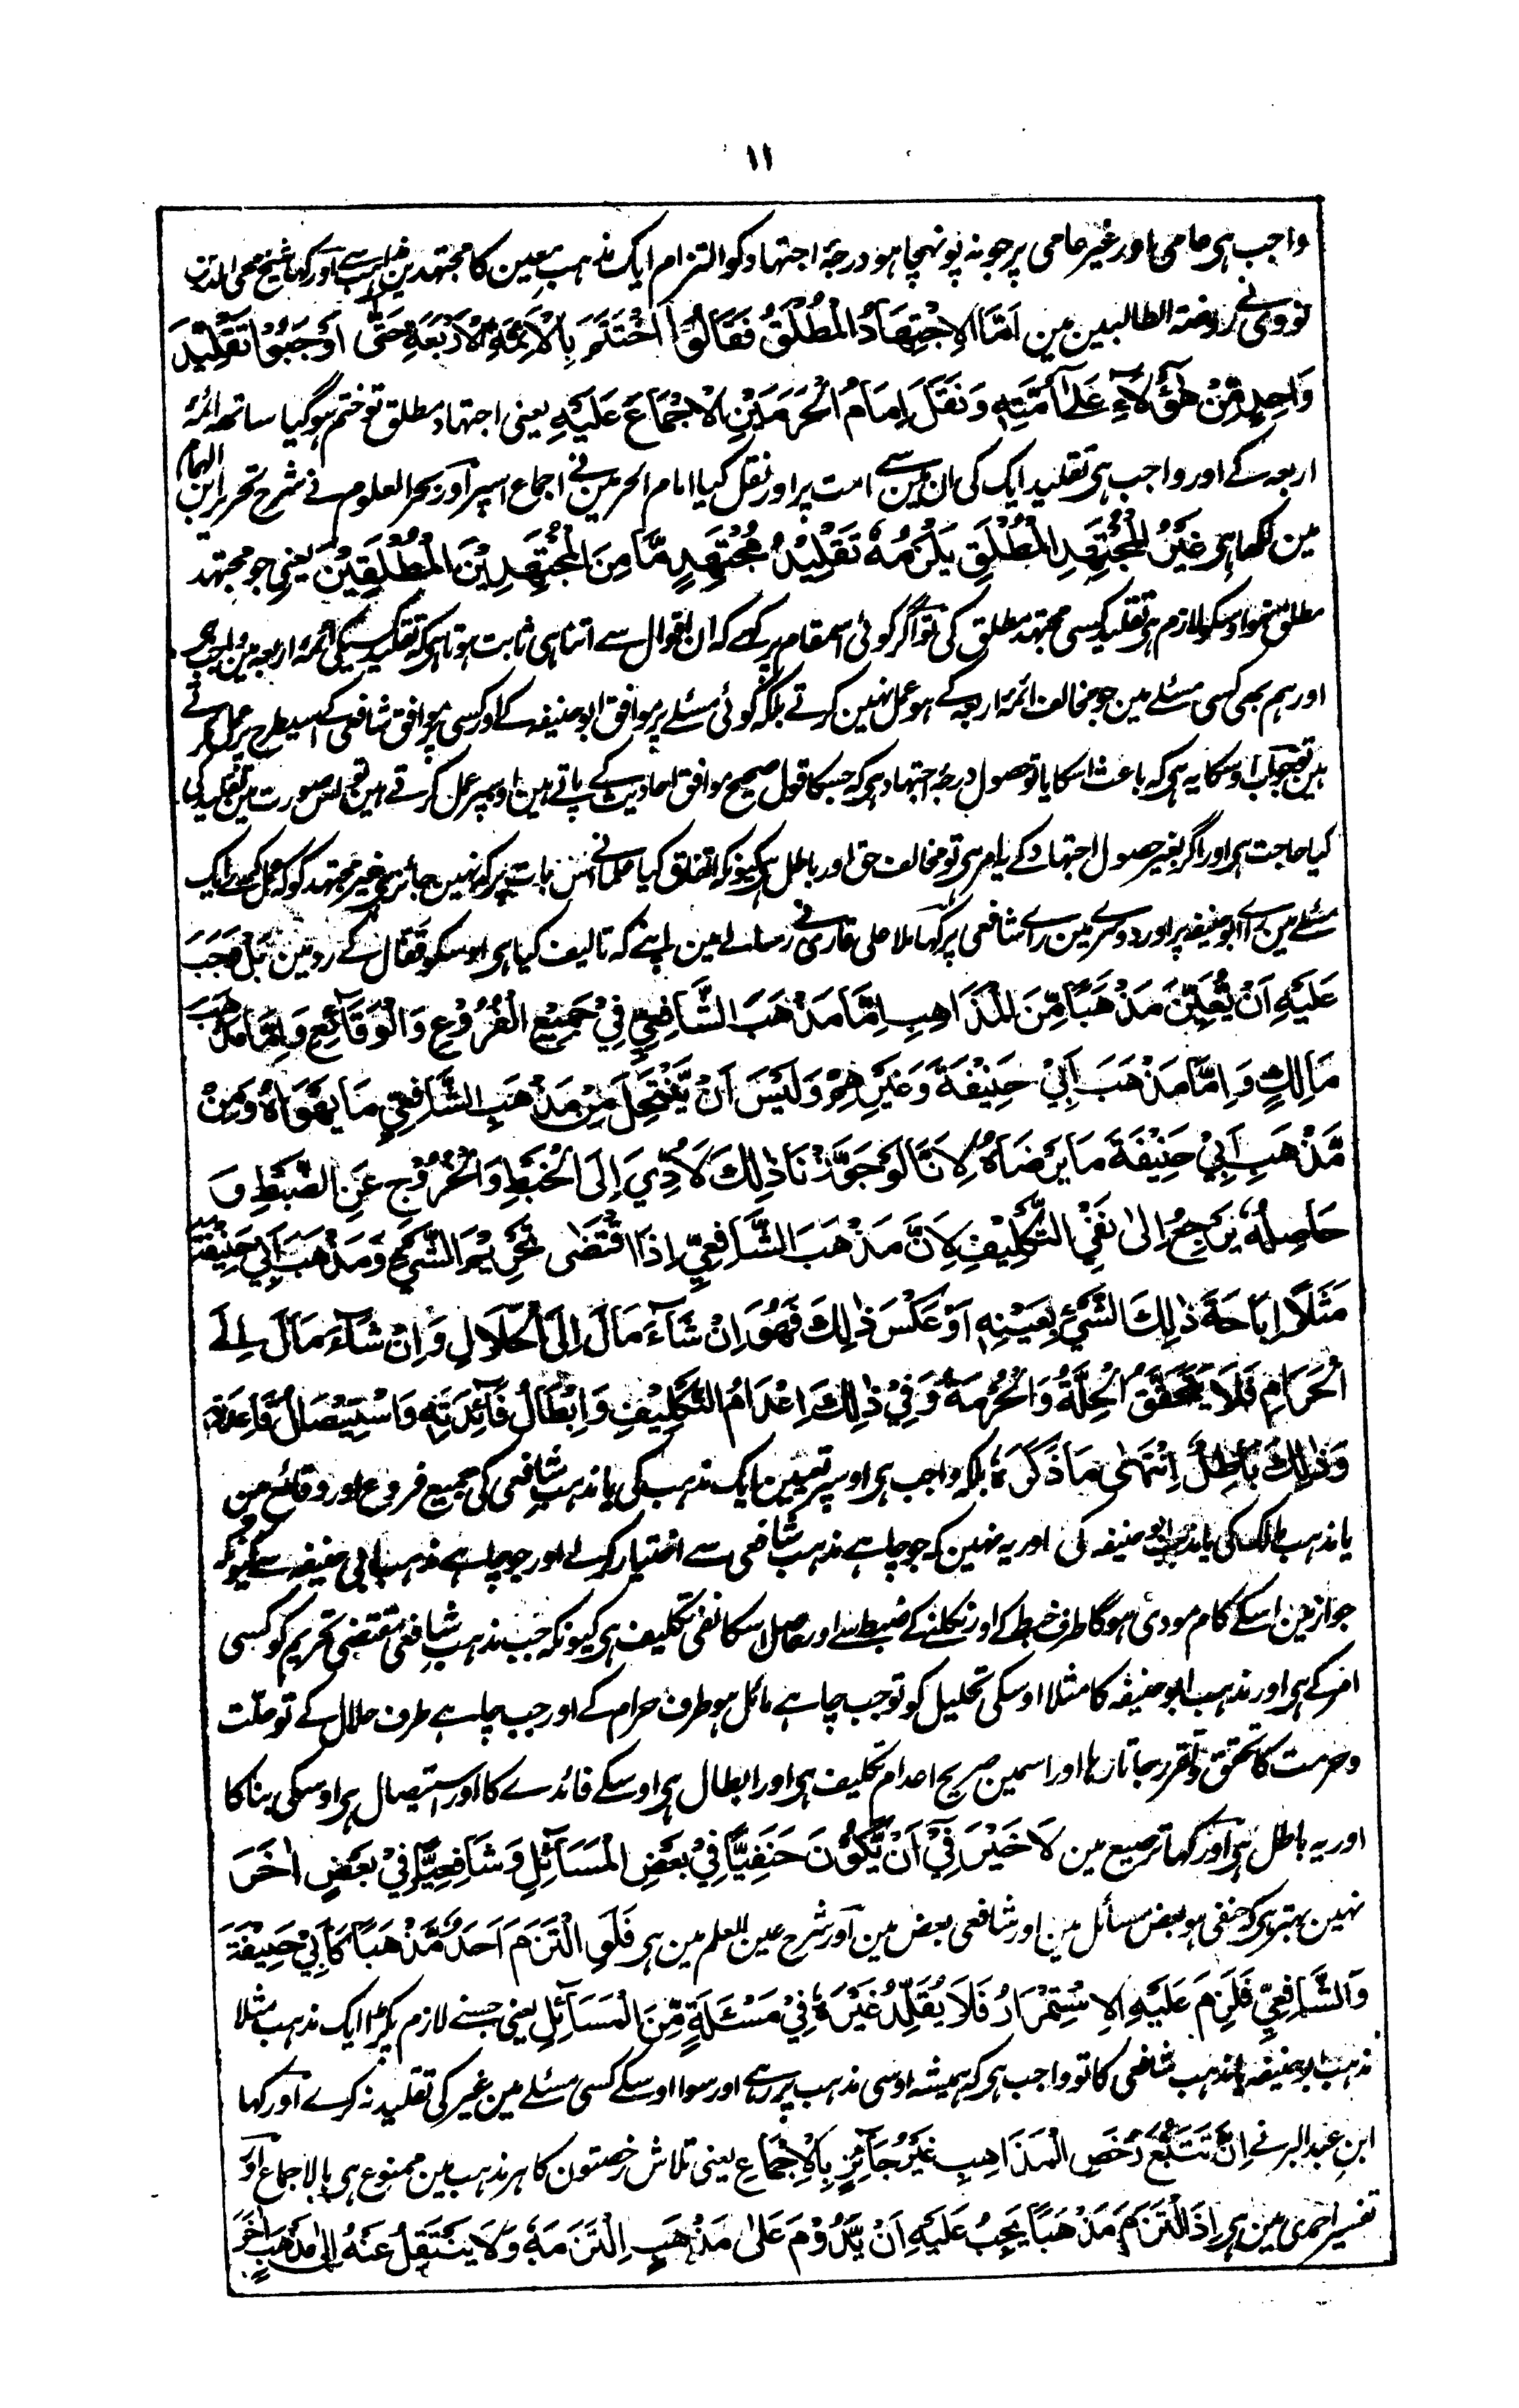 ۱۱
واجب ہی عامی اور غیر عامی پر جو نہ پونہچا ہو درجۂ اجتہاد کو التزام ایک مذہب معین کا مجتہدین مذاہب سے اور کہا شیخ محی الدین
نووی نے روضۃ الطالبین مین اَمَّا الْاِجْتِهَادُ الْمُطْلَقُ فَقَالُوْا اخْتَتَمَ بِالْاَئِمَّةِ الْاَرْبَعَةِ حَتّٰى اَوْجَبُوْا تَقْلِيْدَ
وَاحِدٍ مِّنْ هٰٓؤُلَآءِ عَلٰى اُمَّتِهٖ وَنَقَلَ اِمَامُ الْحَرَمَيْنِ الْاِجْمَاعَ عَلَيْهِ یعنی اجتہاد مطلق تو ختم ہو گیا ساتھ ائمہ
اربعہ کے اور واجب ہی تقلید ایک کی ان مین سے امت پر اور نقل کیا امام الحرمین نے اجماع اسپر اور بحر العلوم نے شرح تحریر ابن الہمام
مین لکھا ہی غَيْرُ الْمُجْتَهِدِ الْمُطْلَقِ يَلْزَمُهٗ تَقْلِيْدُ مُجْتَهِدٍ مَّا مِنَ الْمُجْتَهِدِيْنَ الْمُطْلَقِيْنَ یعنی جو مجتہد
مطلق نہو اوسکو لازم ہی تقلید کسی مجتہد مطلق کی تو اگر کوئی اسمقام پر کہے کہ ان اقوال سے اتنا ہی ثابت ہوتا ہی کہ تقلید کسیکی ائمہ اربعہ مین واجب ہی
اور ہم بھی کسی مسئلے مین جو مخالف ائمہ اربعہ کے ہو عمل نہین کرتے بلکہ کوئی مسئلے پر موافق ابو حنیفہ کے اور کسی پر موافق شافعی کے اسیطرح پر عمل کرتے
ہین تو جواب اوسکا یہ ہی کہ باعث اسکا یا تو حصول درجۂ اجتہاد ہی کہ جسکا قول صحیح موافق احادیث کے پاتے ہین اوسپر عمل کرتے ہین تو اس صورت مین تقلید کی
کیا حاجت ہی اور اگر بغیر حصول اجتہاد کے یہ امر ہی تو مخالف حق اور باطل ہی کیونکہ اتفاق کیا علما نے اس بات پر کہ نہین جائز ہی غیر مجتہد کو کہ عمل کرے ایک
مسئلے مین راے ابو حنیفہ پر اور دوسرے مین راے شافعی پر کہا ملا علی قاری نے رسالے مین اپنے کہ تالیف کیا ہی اوسکو قفال کے رد مین بَلْ وَجَبَ
عَلَيْهِ اَنْ يُّعَيِّنَ مَذْهَبًا مِّنَ الْمَذَاهِبِ اِمَّا مَذْهَبَ الشَّافِعِيِّ فِيْ جَمِيْعِ الْفُرُوْعِ وَالْوَقَآئِعِ وَاِمَّا مَذْهَبَ
مَالِكٍ وَاِمَّا مَذْهَبَ اَبِيْ حَنِيْفَةَ وَغَيْرِهِمْ وَلَيْسَ اَنْ يَّنْتَحِلَ مِنْ مَذْهَبِ الشَّافِعِيِّ مَا يَهْوَاهُ وَمِنْ
مَّذْهَبِ اَبِيْ حَنِيْفَةَ مَا يَرْضَاهُ لِاَنَّا لَوْ جَوَّزْنَا ذٰلِكَ لَاَدّٰى اِلَى الْخَبْطِ وَالْخُرُوْجِ عَنِ الضَّبْطِ وَ
حَاصِلُهٗ يَرْجِعُ اِلٰى نَفْيِ التَّكْلِيْفِ لِاَنَّ مَذْهَبَ الشَّافِعِيِّ اِذَا اقْتَضٰى تَحْرِيْمَ الشَّيْءِ وَمَذْهَبَ اَبِيْ حَنِيْفَةَ
مَثَلًا اِبَاحَةَ ذٰلِكَ الشَّيْءِ بِعَيْنِهٖ اَوْ عَكْسَ ذٰلِكَ فَهُوَ اِنْ شَآءَ مَالَ اِلَى الْحَلَالِ وَاِنْ شَآءَ مَالَ اِلَى
الْحَرَامِ فَلَا يَتَحَقَّقُ الْحِلَّةُ وَالْحُرْمَةُ وَفِيْ ذٰلِكَ اِعْدَامُ التَّكْلِيْفِ وَاِبْطَالُ فَآئِدَتِهٖ وَاسْتِيْصَالُ قَاعِدَتِهٖ
وَذٰلِكَ بَاطِلٌ اِنْتَهٰى مَا ذَكَرَهٗ بلکہ واجب ہی اوسپر تعیین ایک مذہب کی یا مذہب شافعی کی جمیع فروع اور وقائع مین
یا مذہب مالک کی یا مذہب ابو حنیفہ کی اور یہ نہین کہ جو چاہے مذہب شافعی سے اختیار کرلے اور جو چاہے مذہب ابی حنیفہ سے کیونکہ
جواز مین اسکے کام مودی ہوگا طرف خبط کے اور نکلنے کے ضبط سے اور حاصل اسکا نفی تکلیف ہی کیونکہ جب مذہب شافعی مقتضی تحریم کو کسی
امر کے ہی اور مذہب ابو حنیفہ کا مثلا اوسکی تحلیل کو تو جب چاہے مائل ہو طرف حرام کے اور جب چاہے طرف حلال کے تو حلّت
وحرمت کا تحقق و تقرر جاتا رہا اور اسمین صریح اعدام تکلیف ہی اور ابطال ہی اوسکے فائدے کا اور استیصال ہی اوسکی بنا کا
اور یہ باطل ہی اور کہا ترصیع مین لَا خَيْرَ فِيْ اَنْ يَّكُوْنَ حَنَفِيًّا فِيْ بَعْضِ الْمَسَآئِلِ وَشَافِعِيًّا فِيْ بَعْضٍ اٰخَرَ
نہین بہتر ہی کہ حنفی ہو بعض مسائل مین اور شافعی بعض مین اور شرح عین العلم مین ہی فَلَوِ الْتَزَمَ اَحَدٌ مَّذْهَبًا كَاَبِيْ حَنِيْفَةَ
وَالشَّافِعِيِّ فَلَزِمَ عَلَيْهِ الْاِسْتِمْرَارُ فَلَا يُقَلِّدُ غَيْرَهٗ فِيْ مَسْئَلَةٍ مِّنَ الْمَسَآئِلِ یعنی جسنے لازم پکڑا ایک مذہب مثلا
مذہب ابو حنیفہ یا مذہب شافعی کا تو واجب ہی کہ ہمیشہ اوسی مذہب پر رہے اور سوا اوسکے کسی مسئلے مین غیر کی تقلید نہ کرے اور کہا
ابن عبد البر نے اِنَّ تَتَبُّعَ رُخَصِ الْمَذَاهِبِ غَيْرُ جَآئِزٍ بِالْاِجْمَاعِ یعنی تلاش رخصتون کا ہر مذہب مین ممنوع ہی بالاجماع اور
تفسیر احمدی مین ہی اِذَا الْتَزَمَ مَذْهَبًا يَجِبُ عَلَيْهِ اَنْ يَّدُوْمَ عَلٰى مَذْهَبٍ اِلْتَزَمَهٗ وَلَا يَنْتَقِلُ عَنْهُ اِلٰى مَذْهَبٍ اٰخَرَ